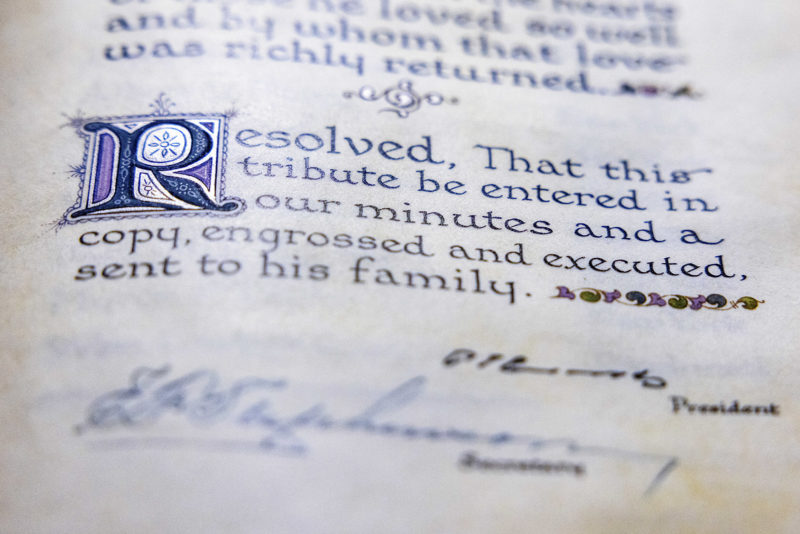 he loved so well
and by whom that love
was richly returned.
Resolved, That this
tribute be entered in
our minutes and a
copy, engrossed and executed,
sent to his family.
President
Secretary